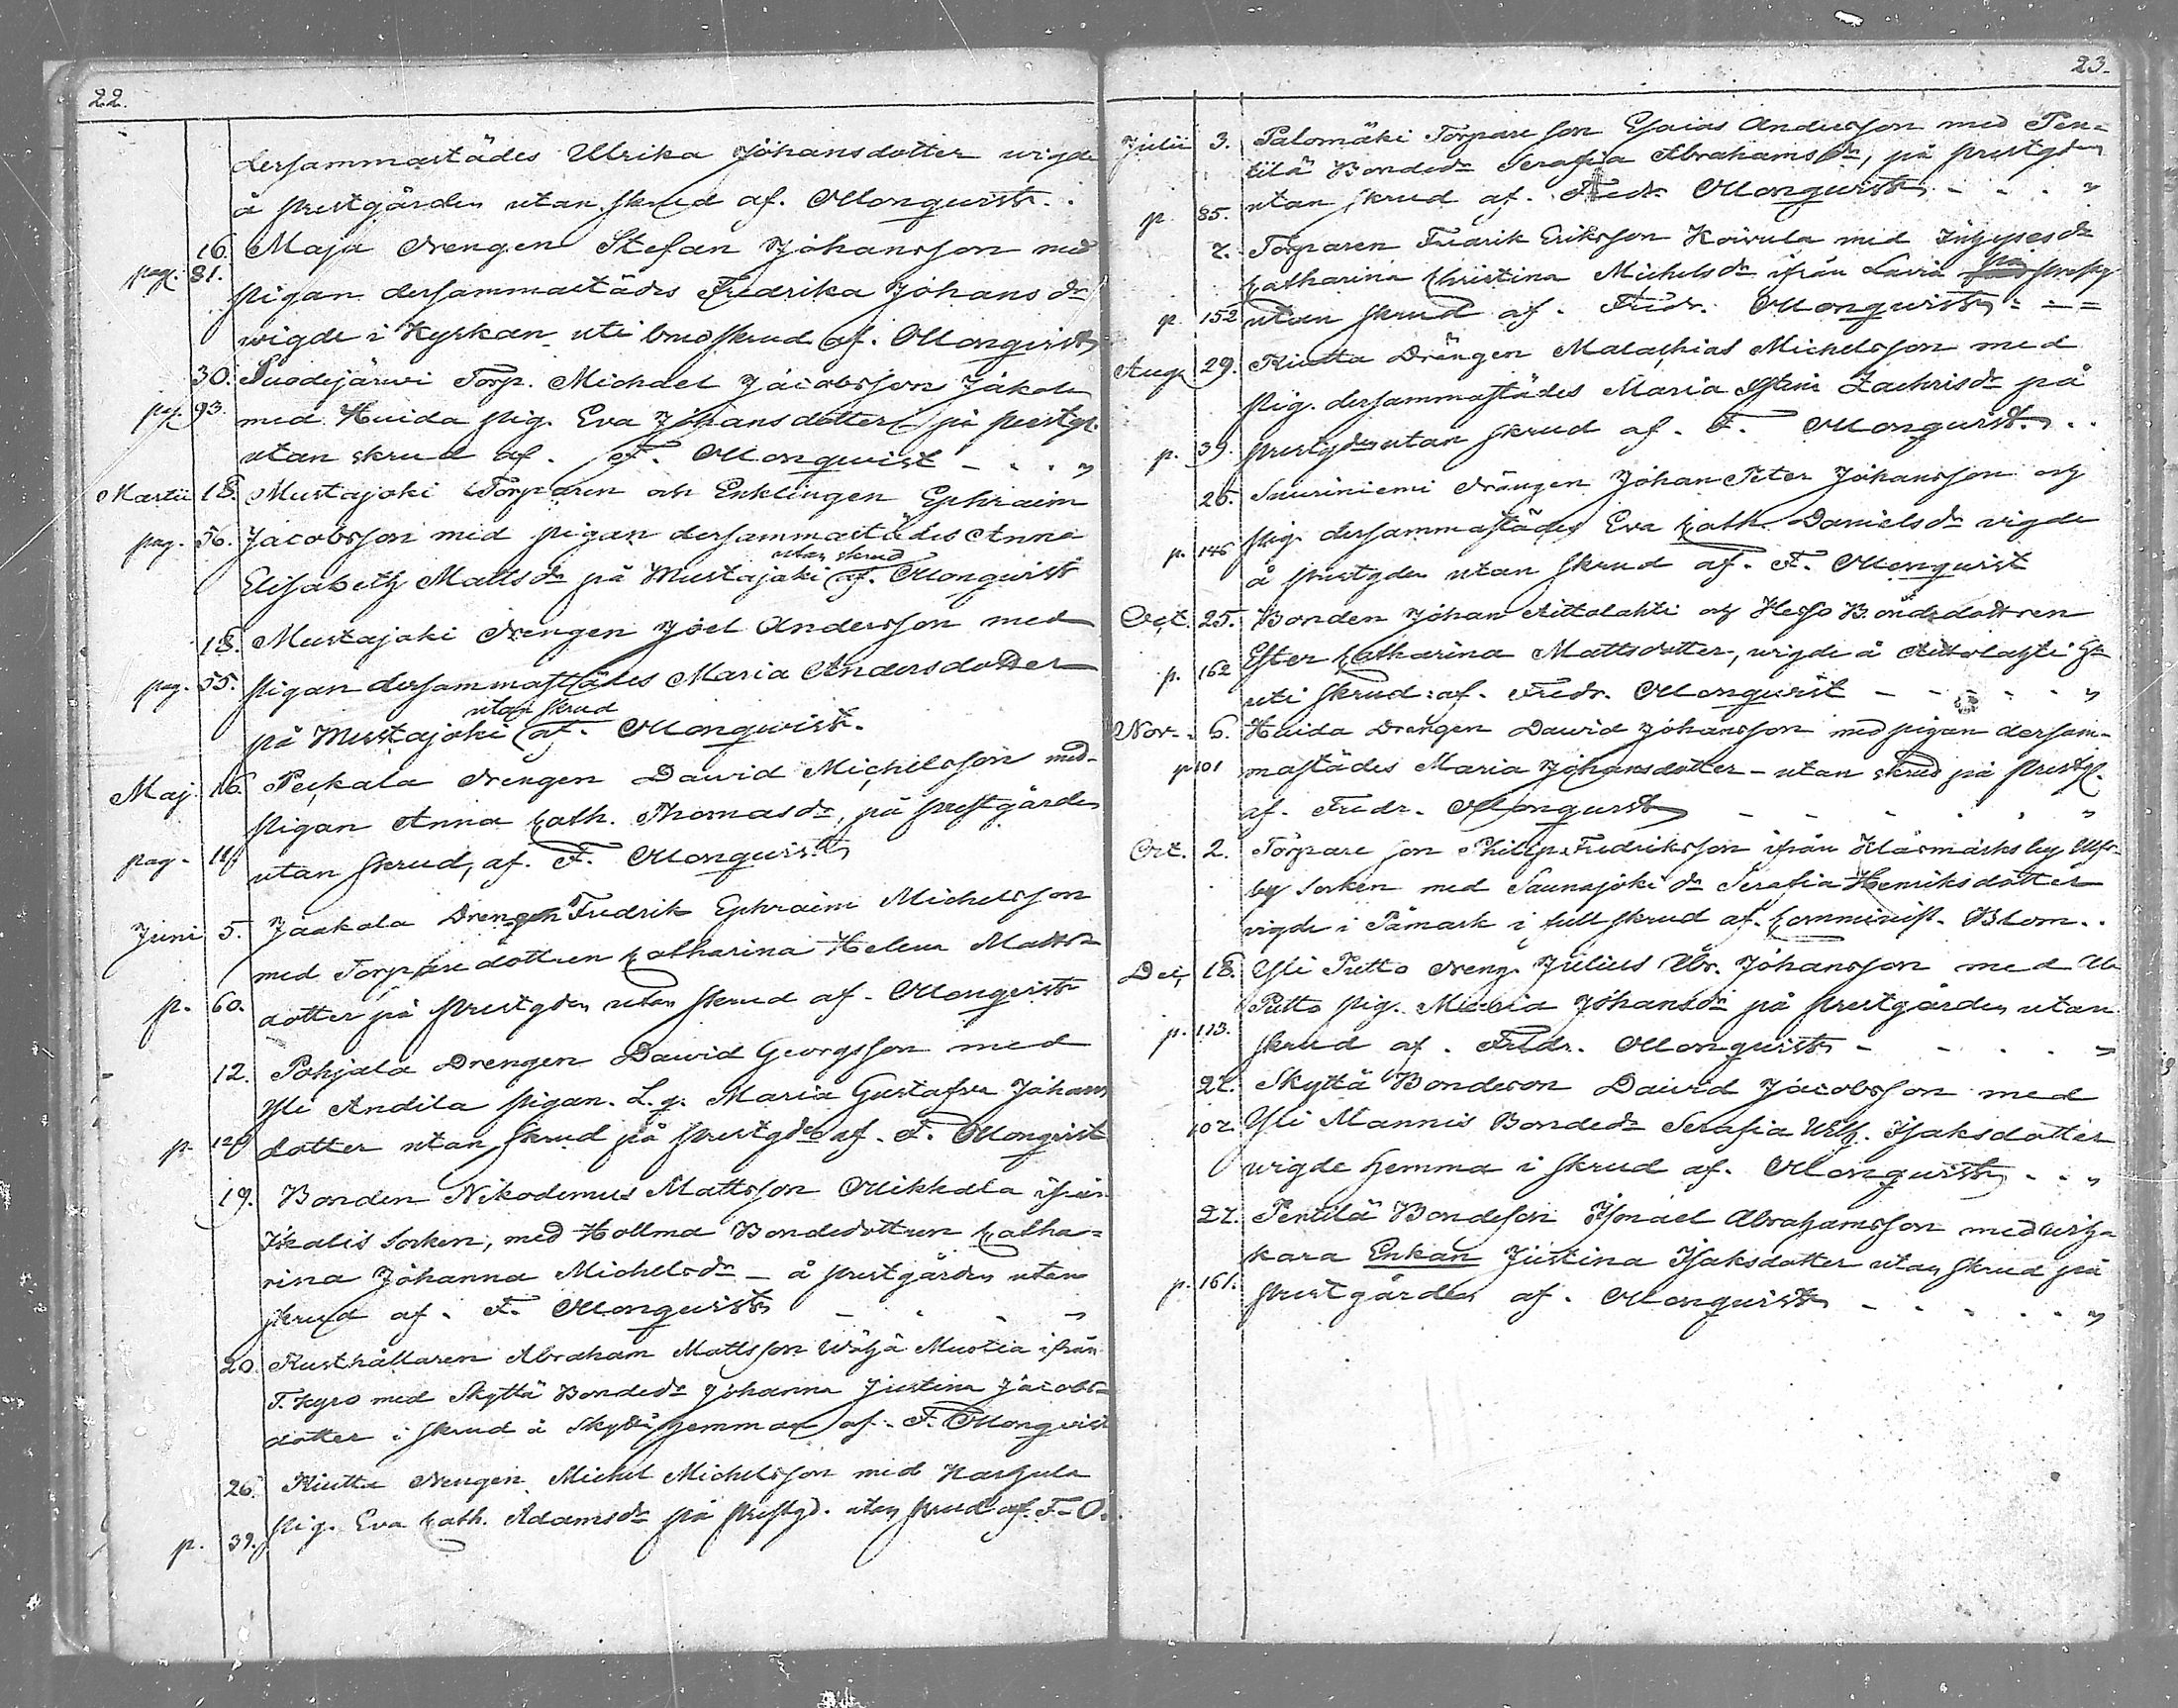 22.
dersammastädes Ulrika Johansdotter wigde
å prestgården utan skrud af. Ollonqwist.
16. Maja Drengen Stefan Johansson med
pag. 81. pigan dersammastädes Fredrika Johansdr
wigde i Kyrkan uti brudskrud af. Ollonqvist
30. Suodejärwi Torp. Michael Jacobsson Jakola
pag. 93. med Huida pig. Eva Johansdotter på prestg.
utan skrud af. F. Ollonqwist - . . "
Martii 18. Mustajoki Torparen och Enklingen Ephraim
pag. 56. Jacobsson med pigan dersammastädes Anna
utan skrud
Elisabeth Mattsdr på Mustajoki af. Ollonqwist
18. Mustajoki Drengen Joel Andersson med
pag. 55. pigan dersammastädes Maria Andersdotter
utan skrud
på Mustajoki af. Ollonqwist.
Maj. 16. Peckala Drengen Dawid Michelsson med
pigan Anna Cath. Thomasdr, på prestgården
pag. utan skrud, af. F. Ollonqwist
Juni 5. Jaakola Drengen Fredrik Ephraim Michelsson
med Torparedottren Catharina Helena Matts
p. 60. dotter på prestgden utan skrud af. Ollonqvist
12. Pohjala Drengen Dawid Georgsson med
Yli Andila pigan. L. g. Maria Gustafva Johans
p. dotter utan skrud på prestgden af. F. Ollonqvist
19. Bonden Nikodemus Mattsson Mikkala ifrån
Ikalis Socken, med Hollma Bondedottren Catha-
rina Johanna Michelsdr - å prestgården utan
skrud af. F. Ollonqwist - . - "
20. Rusthållaren Abraham Mattsson Wähä Muotia ifrån
T. Kyro med Skyttä Bondedr Johanna Justina Jacobs-
dotter i skrud å Skyttä hemman af. F. Ollonqvist
26. Riutta Drengen Michel Michelsson med Harhala
p. 39. pig. Eva Cath. Adamsdr på prestgd. utan skrud af. F. O.
23.
Julii 3. Palomäki Torpare son Esaias Andersson med Pen-
tilä Bondedr Serafia Abrahamsdr, på prestgden
p. 85. utan skrud af. Fredr. Ollonqwist - . . "
2. Torparen Fredrik Eriksson Koivula med Inhysesdr
på
Catharina Christina Michelsdr ifrån Lavia prestg
p. 152 utan skrud af. Fredr. Ollonqwist - - =
Aug. 29. Riutta Drängen Malachias Michelsson med
pig. dersammastädes Maria Stina Zachrisdr på
p. 39. prestgden utan skrud af. F. Ollonqwist. . .
25. Suuriniemi Drängen Johan Peter Johansson och
p. 146 pig. dersammastädes Eva Cath. Danielsdr vigde
å prestgden utan skrud af. F. Ollonqwist
Oct. 25. Bonden Johan Aittolahti och Heso Bondedottren
p. 162 Ester Catharina Mattsdotter, wigde å Aittolahti
uti skrud: af. Fredr. Ollonqwist - - - - - "
Nov. 6. Huida Drengen Dawid Johansson med pigan dersam-
p. 101 mastädes Maria Johansdotter - utan skrud på prestg.
af. Fredr. Ollonqwist - - - . . "
Oct. 2. Torpare son Philip Fredriksson ifrån Klåsmarks by Ulfs-
by Socken med Saunajoki dr Serafia Henriksdotter
vigde i Påmark i full skrud af. Comminist. Blom. .
Dec. 18. Yli Potto Dreng. Julius Abr. Johansson med Ala
Potto pig. Maria Johansdr på prestgården utan
p. 113. skrud af. Fredr. Ollonqwist - - . . "
27. Skyttä Bondeson David Jacobsson med
102. Yli Mannis Bondedr Serafia Wilh. Isaksdotter
wigde hemma i skrud af. Ollonqwist - . "
27. Pentilä Bondeson Ismael Abrahamsson med
kara Enkan Justina Isaksdotter utan skrud på
p. 161. prestgården af. Ollonqwist - . - . . "